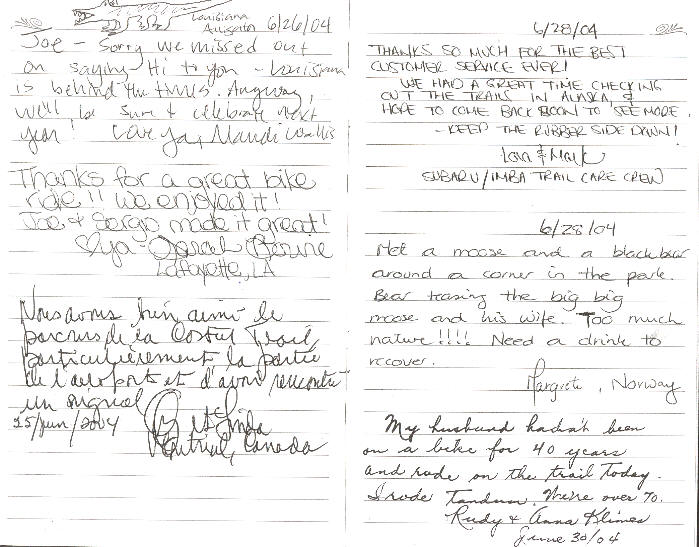 Louisiana
6/26/04
Joe - Sorry we missed out
on saying Hi to you - Louisiana
is behind the times. Anyway,
we'll be sure & celebrate next
year! Love ya, Mandi Wallis
Thanks for a great bike
ride!! We enjoyed it!
Joe & Sergo made it great!
♡ya - Sarah Bourne
Lafayette, LA
Nous avons bien aimé le
parcours de la Costul Trail,
particulièrement la partie
de l'aéroport et d'avoir rencontré
un orignal
25/juin/2004
et Linda
Montréal, Canada
6/28/04
THANKS SO MUCH FOR THE BEST
CUSTOMER SERVICE EVER!
WE HAD A GREAT TIME CHECKING
OUT THE TRAILS IN ALASKA, &
HOPE TO COME BACK SOON TO SEE MORE.
- KEEP THE RUBBER SIDE DOWN!
Lora & Mark
SUBARU/IMBA TRAIL CARE CREW
6/28/04
Met a moose and a black bear
around a corner in the park.
Bear teasing the big big
moose and his wife. Too much
nature!!!! Need a drink to
recover.
Margrete, Norway
My husband hadn't been
on a bike for 40 years
and rode on the trail today.
I rode Tandum. We're over 70.
Rudy & Anna Klimes
June 30/04